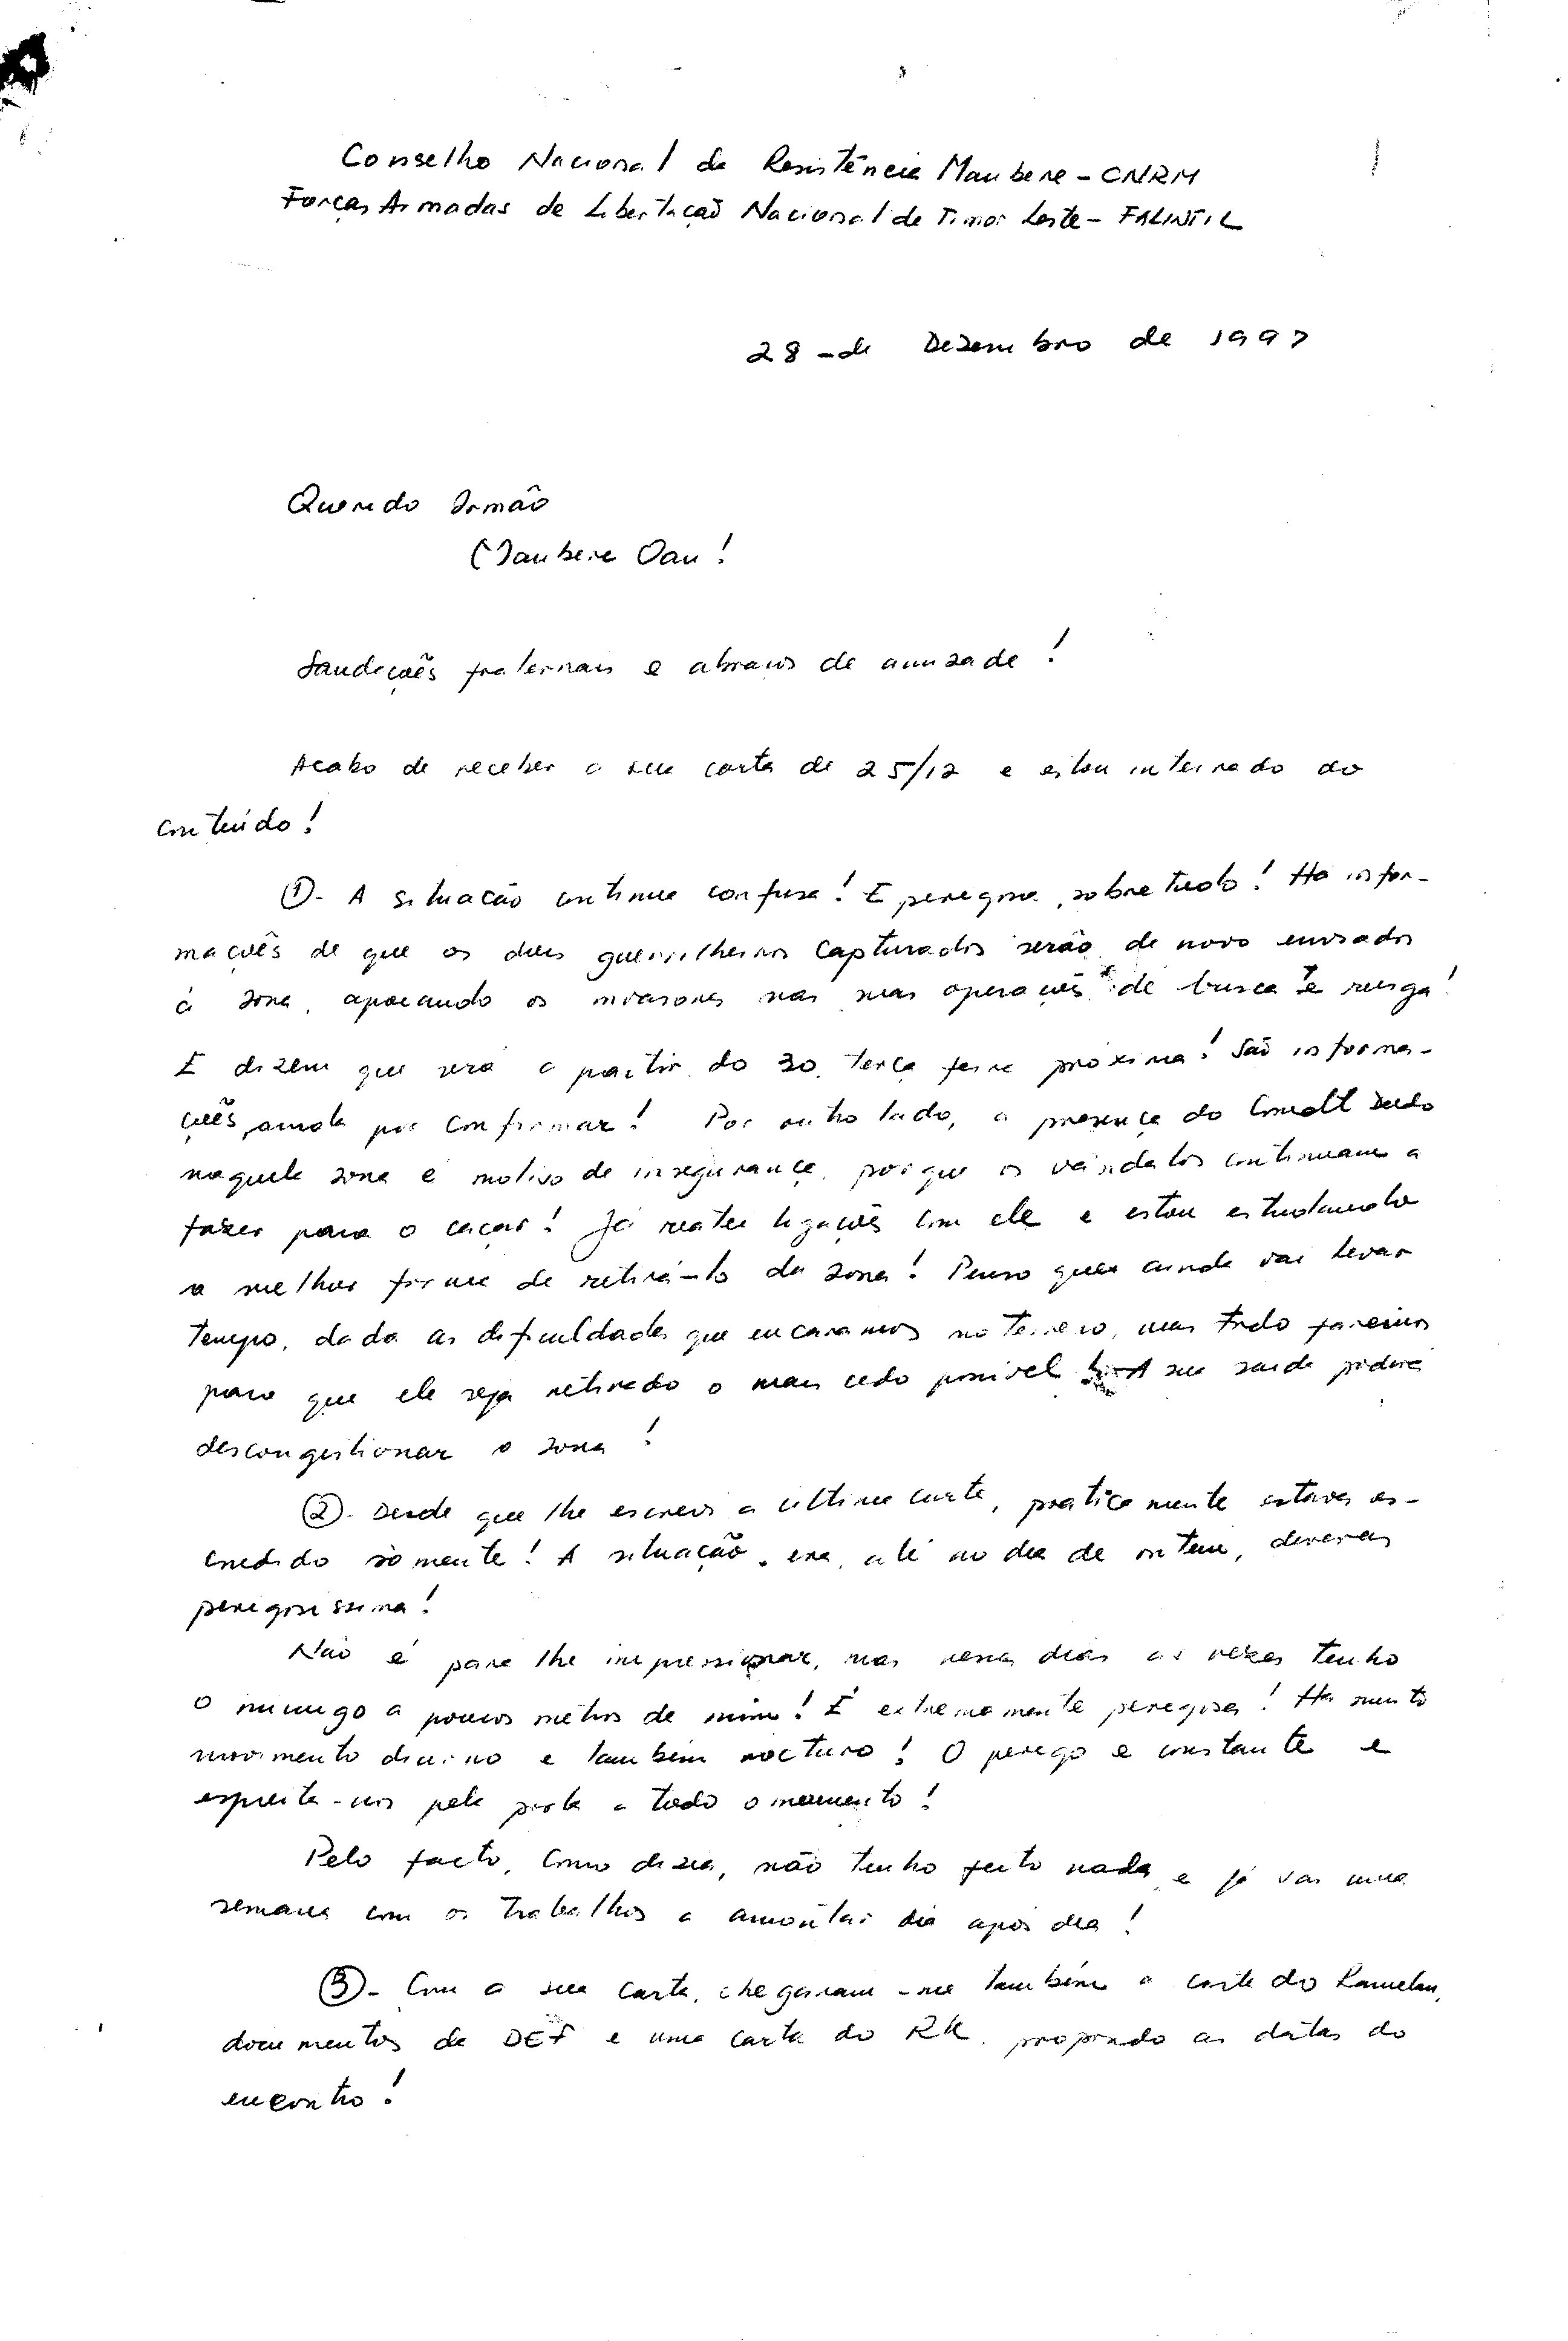 Conselho Nacional da Resistência Maubere - CNRM
Forças Armadas de Libertação Nacional de Timor Leste - FALINTIL
28 - de Dezembro de 1997
Querido Irmão
Maubere Oan!
Saudações fraternais e abraços de amizade!
Acabo de receber a sua carta de 25/12 e estou inteirado do
conteúdo!
①- A situação continua confusa! E perigosa, sobretudo! Há infor-
mações de que os dois guerrilheiros capturados serão de novo enviados
à zona, apoiando os invasores nas suas operações de busca e rusga!
E dizem que será a partir do 30, terça feira próxima! São informa-
ções, ainda por confirmar! Por outro lado, a presença do Cmdt
naquela zona é motivo de insegurança, porque os vândalos continuam a
fazer para o caçar! Já reatei ligações com ele e estou estudando
a melhor forma de retirá-lo da zona! Penso que ainda vai levar
tempo, dada as dificuldades que encaramos no terreno, mas tudo faremos
para que ele seja retirado o mais cedo possível! A sua saída poderá
descongestionar a zona!
②- Desde que lhe escrevi a última carta, praticamente estava es-
condido sòmente! A situação, era, até no dia de ontem, deveras
perigosissima!
Não é para lhe impressionar, mas nesses dias as vezes tenho
o inimigo a poucos metros de mim! É extremamente perigosa! Há muito
movimento diurno e também nocturno! O perigo é constante e
espreita-nos pela porta a todo o momento!
Pelo facto, como dizia, não tenho feito nada, e já vai uma
semana com os trabalhos a amontar dia após dia!
③- Com a sua carta, chegaram-me também a carta do Lamelau,
documentos da DEF e uma carta do RK, propondo as datas do
encontro!